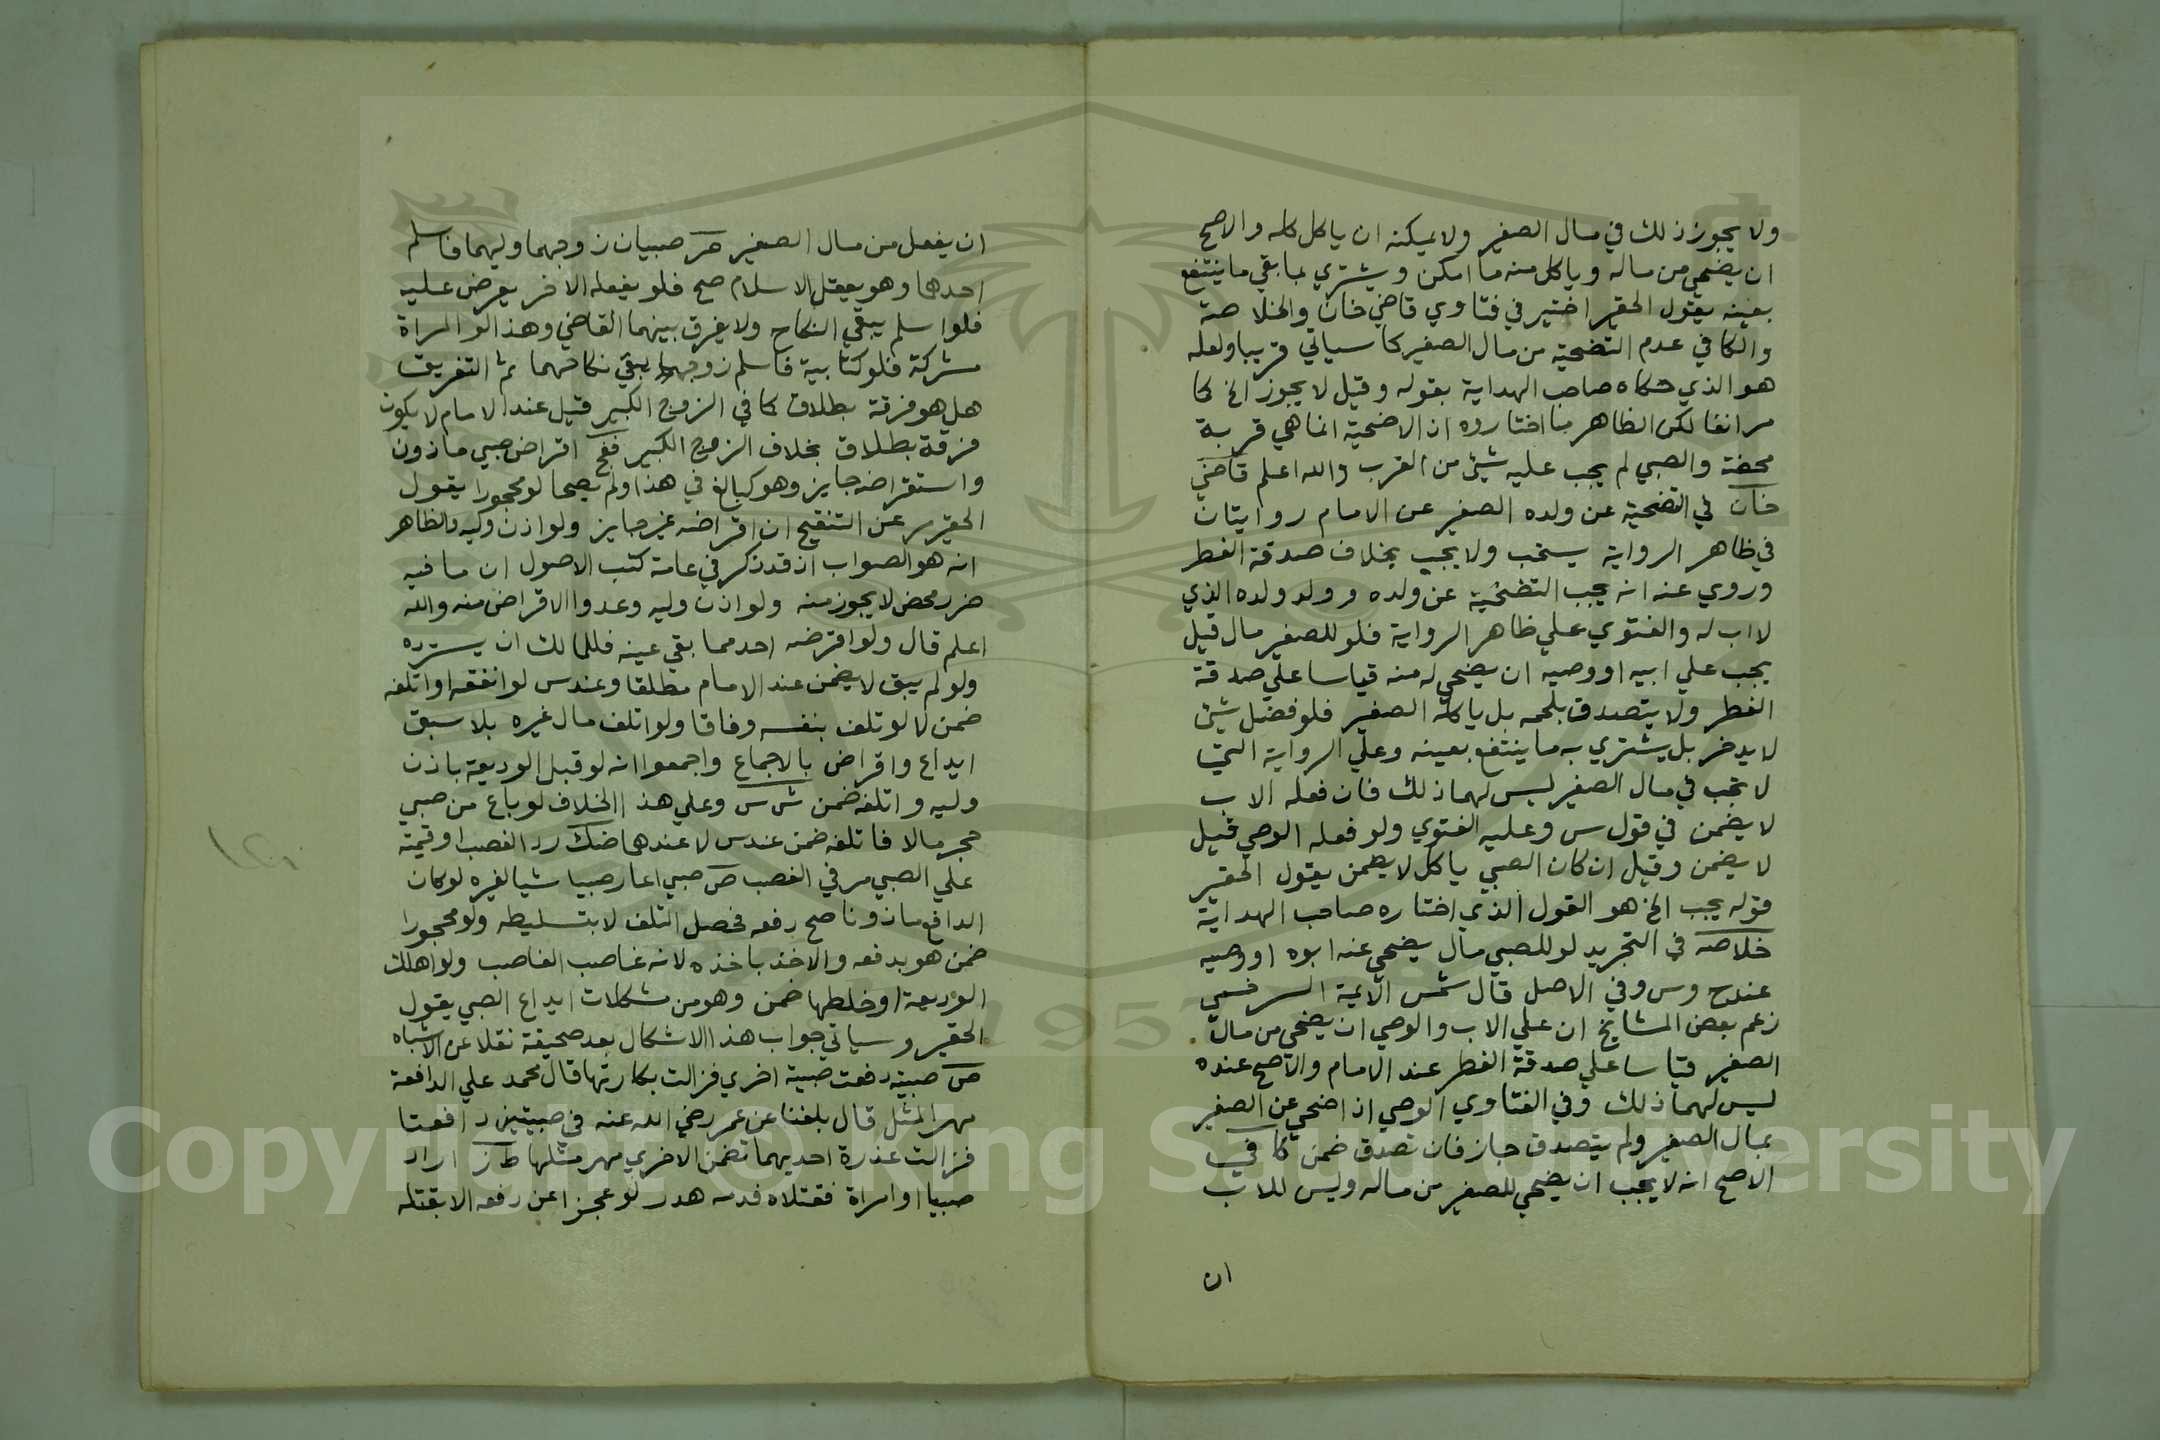 ولا يجوز ذلك في مال الصغير ولا يمكنه ان ياكل كله والاصح
ان يضحي من ماله وياكل منه ما امكن ويشتري بما بقي ما ينتفع
بعينه يقول الحقير اختير في فتاوي قاضي خان والخلاصة
والكافي عدم التضحية من مال الصغير كما سياتي قريبا ولعله
هو الذي حكاه صاحب الهداية بقوله وقيل لا يجوز الخ كما
مر انفا لكن الظاهر ما اختاروه ان الاضحية انما هي قربة
محضة والصبي لم يجب عليه شئ من القرب والله اعلم قاضي
خان في التضحية عن ولده الصغير عن الامام روايتان
في ظاهر الرواية يستحب ولا يجب بخلاف صدقة الفطر
وروي عنه انه يجب التضحية عن ولده و ولد ولده الذي
لا اب له والفتوي علي ظاهر الرواية فلو للصغير مال قيل
يجب علي ابيه او وصيه ان يضحي له منه قياسا علي صدقة
الفطر ولا يتصدق بلحمه بل ياكله الصغير فلو فضل شئ
لا يدخر بل يشتري به ما ينتفع بعينه وعلي الرواية التي
لا تجب في مال الصغير ليس لهما ذلك فان فعله الاب
لا يضمن في قول س وعليه الفتوي ولو فعله الوصي قيل
لا يضمن وقيل ان كان الصبي ياكل لا يضمن يقول الحقير
قوله يجب الخ هو القول الذي اختاره صاحب الهداية
خلاصة في التجريد لو للصبي مال يضحي عنه ابوه او وصيه
عند ح وس وفي الاصل قال شمس الائمة السرخسي
زعم بعض المشايخ ان علي الاب والوصي ان يضحي من مال
الصغير قياسا علي صدقة الفطر عند الامام والاصح عنده
ليس لهما ذلك وفي الفتاوي الوصي اذا ضحي عن الصغير
بمال الصغير ولم يتصدق جاز فان تصدق ضمن كافي
الاصح انه لا يجب ان يضحي للصغير من ماله وليس للاب
ان
ان يفعل من مال الصغير صبيان زوجهما وليهما فاسلم
احدهما وهو يعقل الاسلام صح فلو يفعله الاخر يعرض عليه
فلو اسلم يبقي النكاح ولا يفرق بينهما القاضي وهذا لو المراة
مشركة فلو كتابية فاسلم زوجها بقي نكاحهما ثم التفريق
هل هو فرقة بطلاق كما في الزوج الكبير قيل عند الامام لا يكون
فرقة بطلاق بخلاف الزوج الكبير اقراض صبي ماذون
واستقراضه جايز وهو كبالغ في هذا ولم يصحا لو محجورا يقول
الحقير مر عن التنقيح ان اقراضه غير جايز ولو اذن وليه والظاهر
انه هو الصواب اذ قد ذكر في عامة كتب الاصول ان ما فيه
ضرر محض لا يجوز منه ولو اذن وليه وعدوا الاقراض منه والله
اعلم قال ولو اقترضه احد مما بقي عينه فللمالك ان يسترده
ولو لم يبق لا يضمن عند الامام مطلقا وعند س لو انفقه او اتلفه
ضمن لا لو تلف بنفسه وفاقا ولو اتلف مال غيره بلا سبق
ايداع واقراض بالاجماع واجمعوا انه لو قبل الوديعة باذن
وليه واتلفه ضمن وعلي هذا الخلاف لو باع من صبي
حجر مالا فاتلفه ضمن عند س لا عندهما رد الغصب او قيمته
علي الصبي مر في الغصب ص صبي اعار صبيا شيا لغيره لو كان
الدافع ماذونا صح دفعه فحصل التلف لا بتسليطه ولو محجورا
ضمن هو بدفعه والاخذ باخذه لانه غاصب الغاصب ولو اهلك
الوديعة او خلطها ضمن وهو من مشكلات ايداع الصبي يقول
الحقير وسياتي جواب هذا الاشكال بعد صحيفة نقلا عن الاشباه
ص صبية دفعت صبية اخري فزالت بكارتها قال محمد علي الدافعة
مهر المثل قال بلغنا عن عمر رضي الله عنه في صبيتين دافعتا
فزالت عذرة احديهما تضمن الاخري مهر مثلها اراد
صبيا او امراة فقتلاه فدمه هدر لو عجزا عن دفعه الا بقتله
Copyright © King Saud University
1957